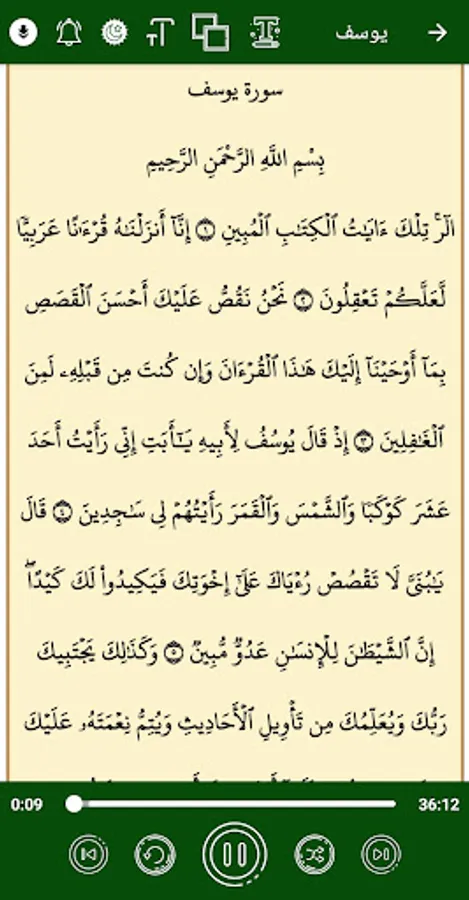 يوسف
سورة يوسف
بِسْمِ اللَّهِ الرَّحْمَنِ الرَّحِيمِ
الٓرۚ تِلۡكَ ءَايَٰتُ ٱلۡكِتَٰبِ ٱلۡمُبِينِ ۝١ إِنَّآ أَنزَلۡنَٰهُ قُرۡءَٰنًا عَرَبِيّٗا
لَّعَلَّكُمۡ تَعۡقِلُونَ ۝٢ نَحۡنُ نَقُصُّ عَلَيۡكَ أَحۡسَنَ ٱلۡقَصَصِ
بِمَآ أَوۡحَيۡنَآ إِلَيۡكَ هَٰذَا ٱلۡقُرۡءَانَ وَإِن كُنتَ مِن قَبۡلِهِۦ لَمِنَ
ٱلۡغَٰفِلِينَ ۝٣ إِذۡ قَالَ يُوسُفُ لِأَبِيهِ يَٰٓأَبَتِ إِنِّي رَأَيۡتُ أَحَدَ
عَشَرَ كَوۡكَبٗا وَٱلشَّمۡسَ وَٱلۡقَمَرَ رَأَيۡتُهُمۡ لِي سَٰجِدِينَ ۝٤ قَالَ
يَٰبُنَيَّ لَا تَقۡصُصۡ رُءۡيَاكَ عَلَىٰٓ إِخۡوَتِكَ فَيَكِيدُواْ لَكَ كَيۡدًاۖ
إِنَّ ٱلشَّيۡطَٰنَ لِلۡإِنسَٰنِ عَدُوّٞ مُّبِينٞ ۝٥ وَكَذَٰلِكَ يَجۡتَبِيكَ
رَبُّكَ وَيُعَلِّمُكَ مِن تَأۡوِيلِ ٱلۡأَحَادِيثِ وَيُتِمُّ نِعۡمَتَهُۥ عَلَيۡكَ
0:09 36:12